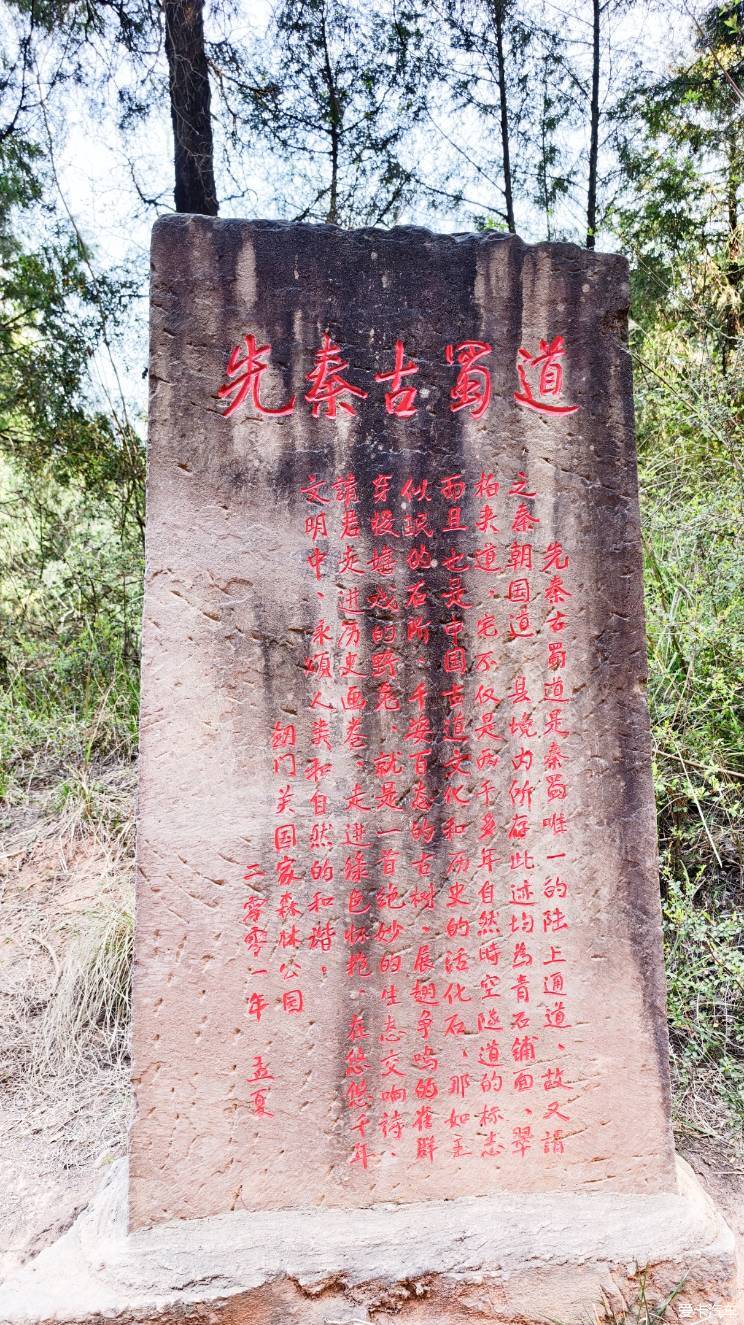 先秦古蜀道
先秦古蜀道是秦蜀唯一的陆上通道、故又謂
之秦朝国道 县境内所存此迹均为青石铺面、翠
柏夹道。它不仅是两千多年自然時空隧道的标志
而且也是中国古道文化和历史的活化石、那如玉
似珉的石阶、千姿百态的古树、展翅争鸣的雀群
穿梭嬉戏的野兔、就是一首绝妙的生态交响诗、
請君走进历史画卷、走进绿色怀抱、在悠悠千年
文明中、永颂人类和自然的和谐。
剑门关国家森林公园
二零零一年 孟夏
爱卡汽车